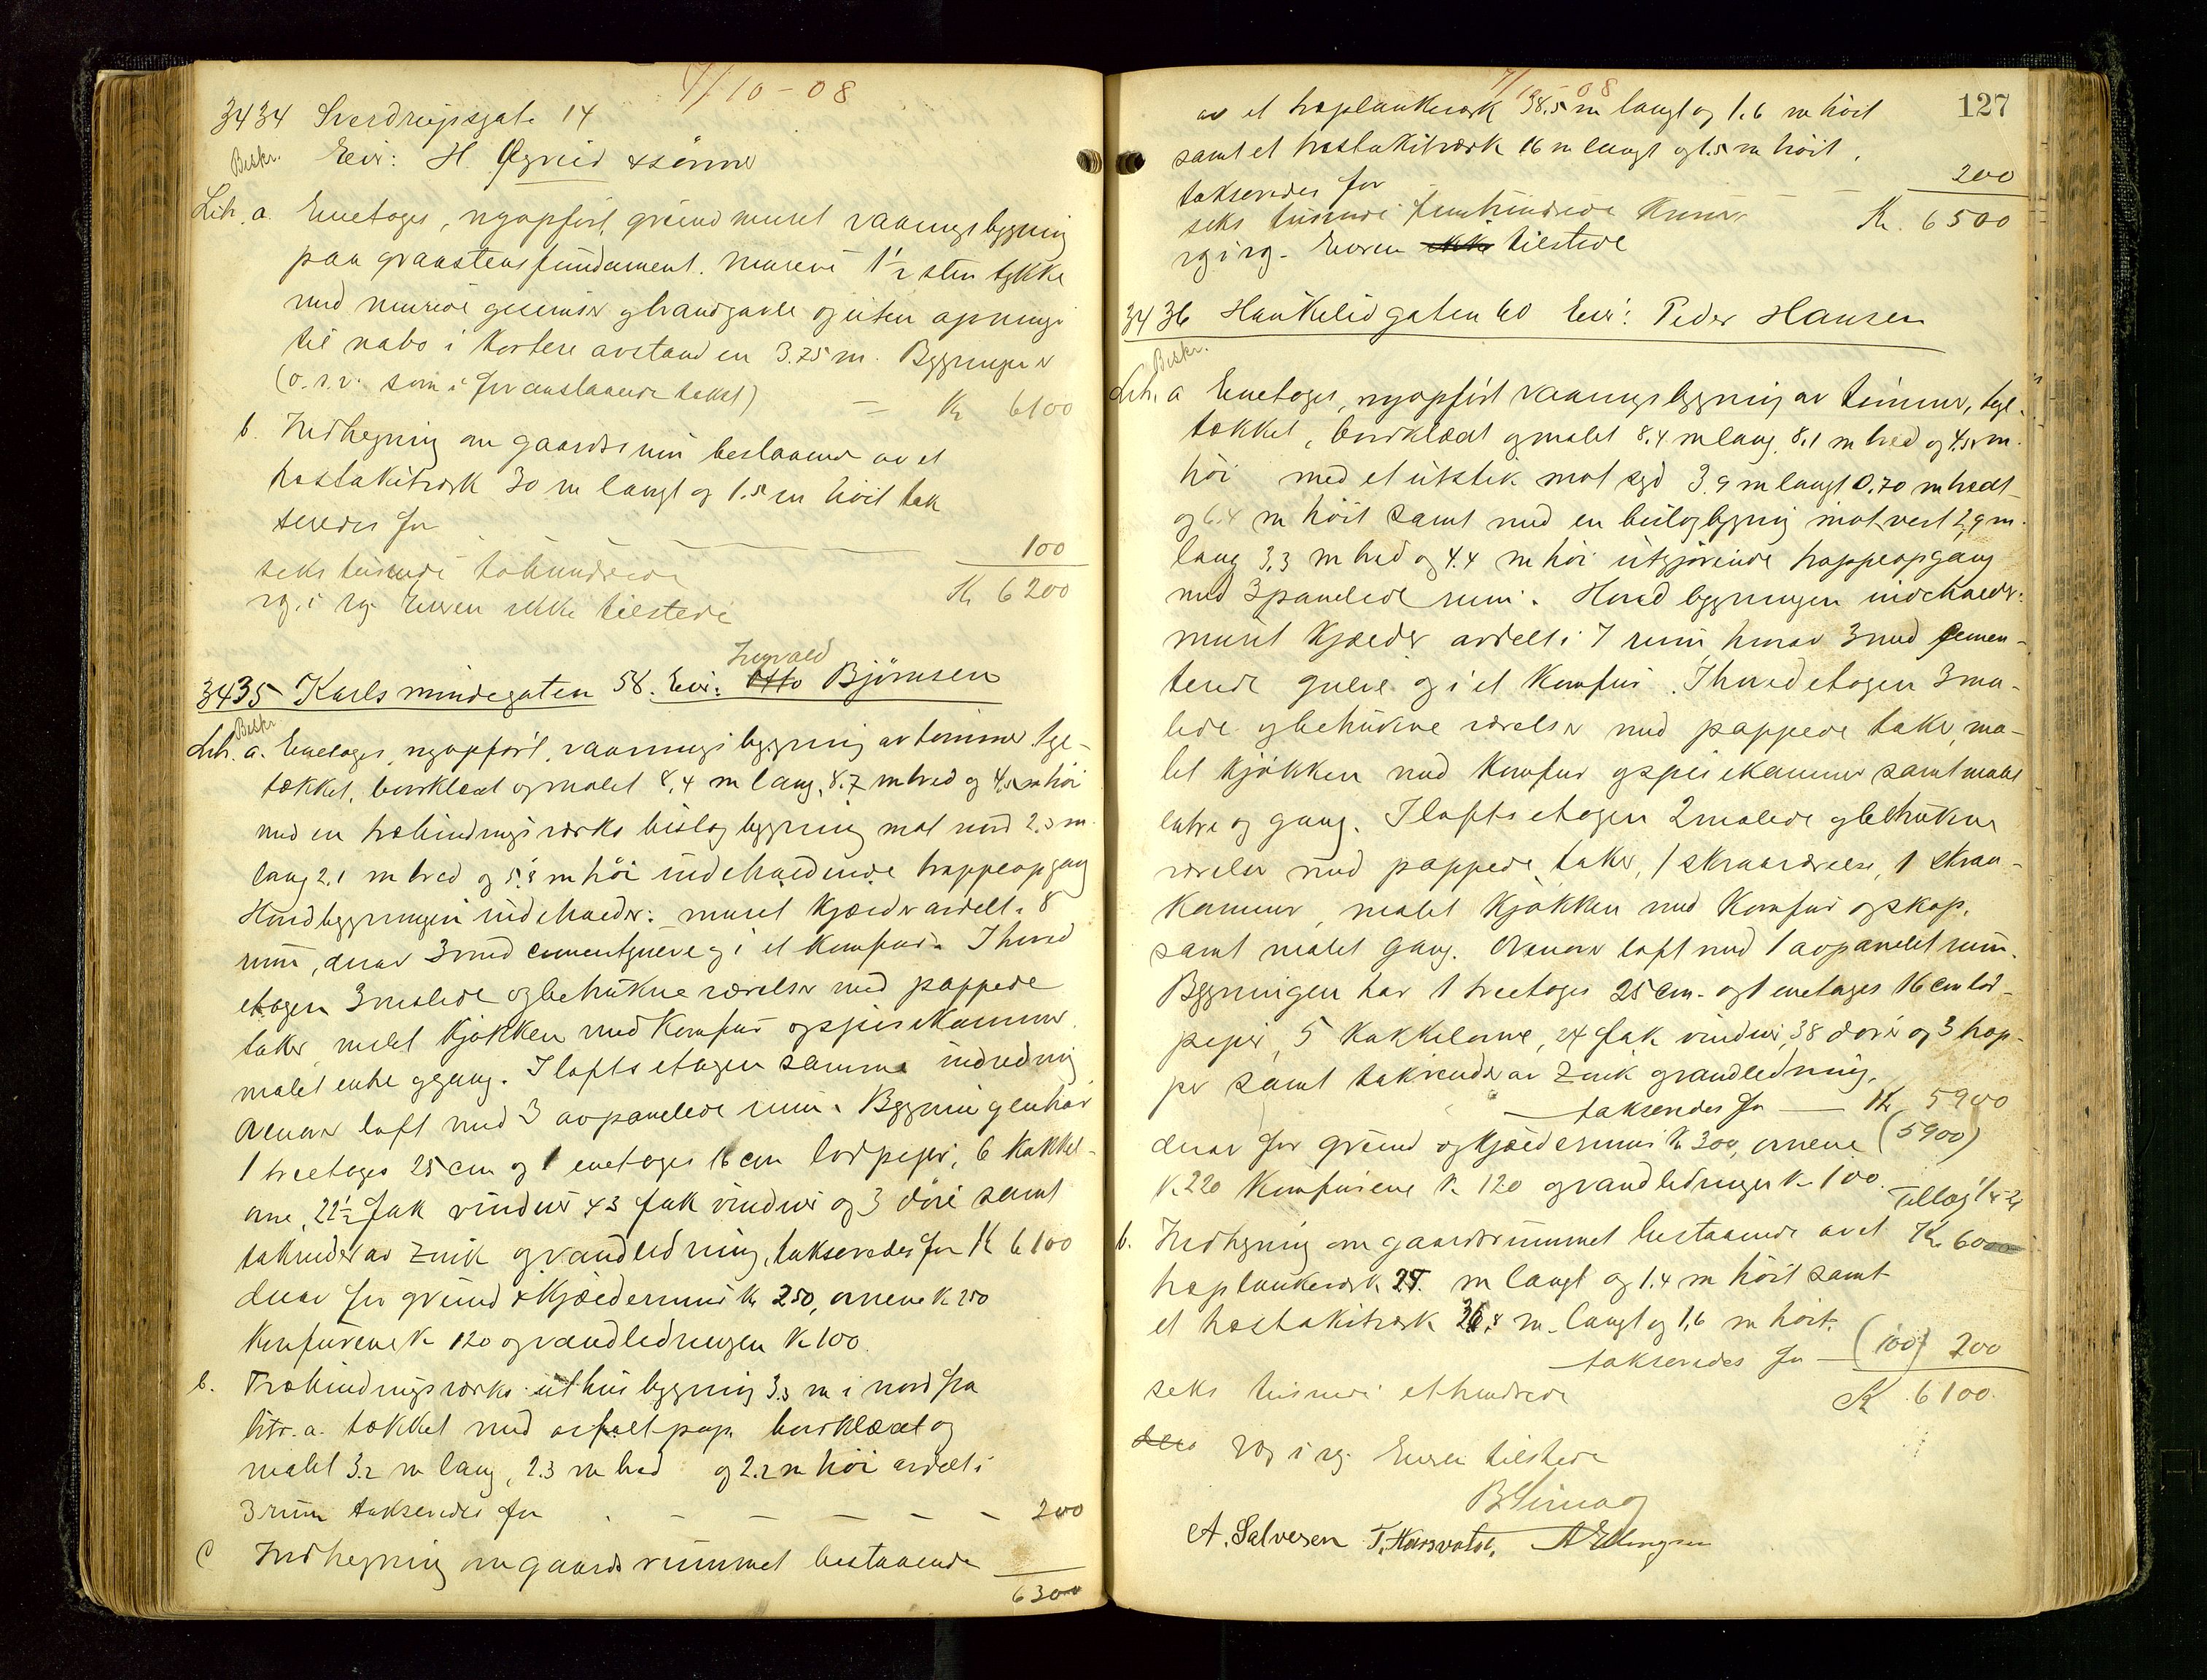 7/10-08
3434 Sverdrupsgate 14
Beskr. Eier: H. Øgreid & sönner
Litr. a. Enetages, nyopfört, grundmuret vaaningsbygning
paa graastensfundament. Murene 1½ sten tykke
med murede gesimser og brandgavle og uten aapninger
til nabo i kortere avstand en 3.75 m. Bygningen er
(o.s.v. som i foranstaaende takst) — Kr 6100
b. Indhegning om gaardsrum bestaaende av et
træstakitværk 30 m langt og 1.5 m höit tak
seredes for
100
seks tusende tohundrede Kr 6200
rg. i rg. Eieren ikke tilstede
Ingvald
3435 Karlsmindegaten 58. Eier: Otto Björnsen
Beskr.
Litr. a. Enetages, nyopfört, vaaningsbygning av tömmer, tegl-
tækket, bordklædt og malet 8,4 m lang, 8.7 m bred og 4,5 m höi
med en træbindingsværks bislagbygning mot nord 2.3 m
lang 2.1 m bred og 5.8 m höi indeholdende trappeopgang
Hovedbygningen indeholder: muret kjælder avdelt i 8
rum, derav 3 med cementgulve og i et komfur. I hoved
etagen 3 malede og betrukne værelser med pappede
taker, malet kjökken med komfur og spisekammer,
malet entre og gang. I loftsetagen samme indredning
Ovenover loft med 3 avpanelede rum. Bygningen har
1 treetages 25 cm og 1 enetages 16 cm lodpiper, 6 kakkel-
ovne, 22½ fak vinduer 43 fak vinduer og 3 döre samt
takrender av zink og vandledning, takseredes for Kr 6100
derav for grund & kjældermur kr 250, ovnene kr 250
komfurene kr 120 og vandledningen kr 100.
b. Træbindingsværks uthusbygning 3.5 m i nord fra
litr. a. tækket med asfaltpap, bordklædt og
malet 3.2 m lang, 2.3 m bred og 2.2 m höi avdelt i
3 rum takseredes for — — — — — 200
c Indhegning om gaardsrummet bestaaende
6300
7/10-08
127
av et træplankeværk 38.5 m langt og 1.6 m höit
samt et træstakitværk 16 m langt og 1.5 m höit,
takseredes for — — 200
seks tusende femhundrede kroner Kr. 6500
rg i rg. Eieren ikke tilstede
3436 Haukelidgaten 60 Eier: Peder Hansen
Beskr.
Litr. a Enetages, nyopfört vaaningsbygning av tömmer, tegl-
tækket, bordklædt og malet 8.4 m lang, 8.1 m bred og 4.5 m.
höi med et utstik mot syd 3.9 m langt 0.70 m bredt
og 6.4 m höit samt med en bislagbygning mot vest 2,9 m.
lang 3,3 m bred og 4.4 m höi utgjörende trappeopgang
med 3 panelede rum. Hovedbygningen indeholder:
muret kjælder avdelt i 7 rum hvorav 3 med cemen-
terede gulve og i et komfur. I hovedetagen 3 ma-
lede og betrukne værelser med pappede taker, ma-
let kjökken med komfur og spisekammer samt malet
entre og gang. I loftsetagen 2 malede og betrukne
værelser med pappede taker, 1 skraaværelse, 1 skraa-
kammer, malet kjökken med komfur og skap,
samt malet gang. Ovenover loft med 1 avpanelet rum.
Bygningen har 1 treetages 25 cm. og 1 enetages 16 cm lod-
piper, 5 kakkelovne, 24 fak vinduer, 38 döre og 3 trap-
per samt takrender av zink og vandledning,
takseredes for — Kr 5900
derav for grund og kjældermur kr 300, ovnene (5900)
kr 220 komfurene kr 120 og vandledningen kr 100.
b. Indhegning om gaardsrummet bestaaende av et Kr. 6000
træplankeværk 25. m langt og 1.4 m höit samt
et træstakitværk 36,8 m. langt og 1,6 m höit.
takseredes for — (100) 200
seks tusende ethundrede Kr 6100.
rg i rg. Eieren tilstede
A. Salvesen